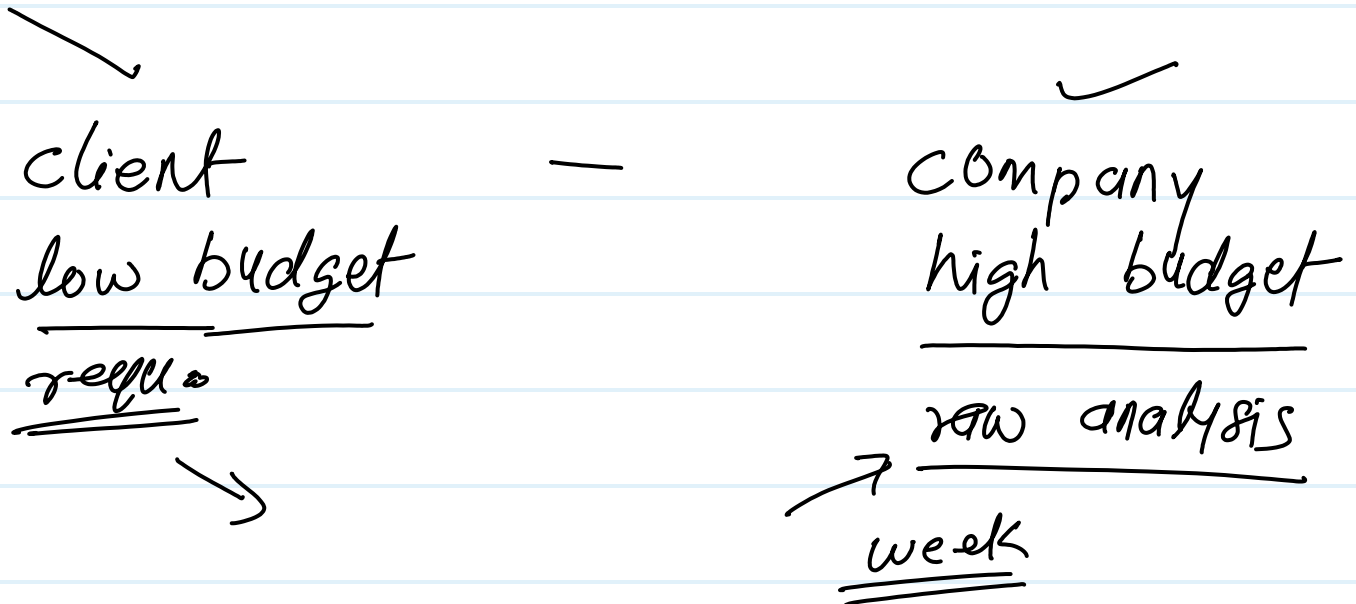 client — company
low budget high budget
requ.
raw analysis
week